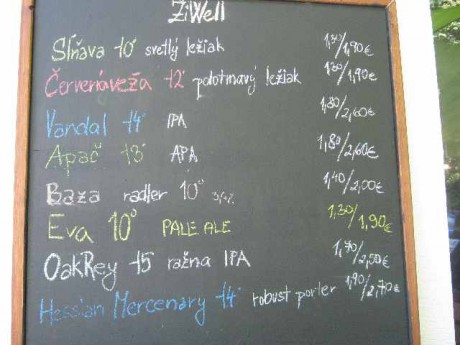 ŽiWell
Sĺňava 10° svetlý ležiak 1,30/1,90€
Červenáveža 12° polotmavý ležiak 1,30/1,90€
Vandal 14° IPA 1,80/2,60€
Apač 13° APA 1,80/2,60€
Baza radler 10° 1,40/2,00€
Eva 10° PALE ALE 1,30/1,90€
OakRey 15° ražna IPA 1,70/2,50€
Hessian Mercenary 14° robust porter 1,90/2,70€